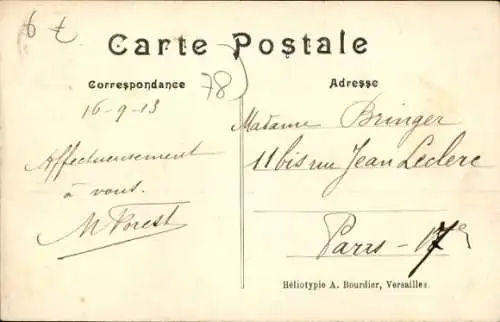 6 t
Carte Postale
Correspondance
78
Adresse
16-9-13
Affectueusement
à vous.
M Forest
Madame Bringer
11 bis rue Jean Leclerc
Paris - 17e
Héliotypie A. Bourdier, Versailles.